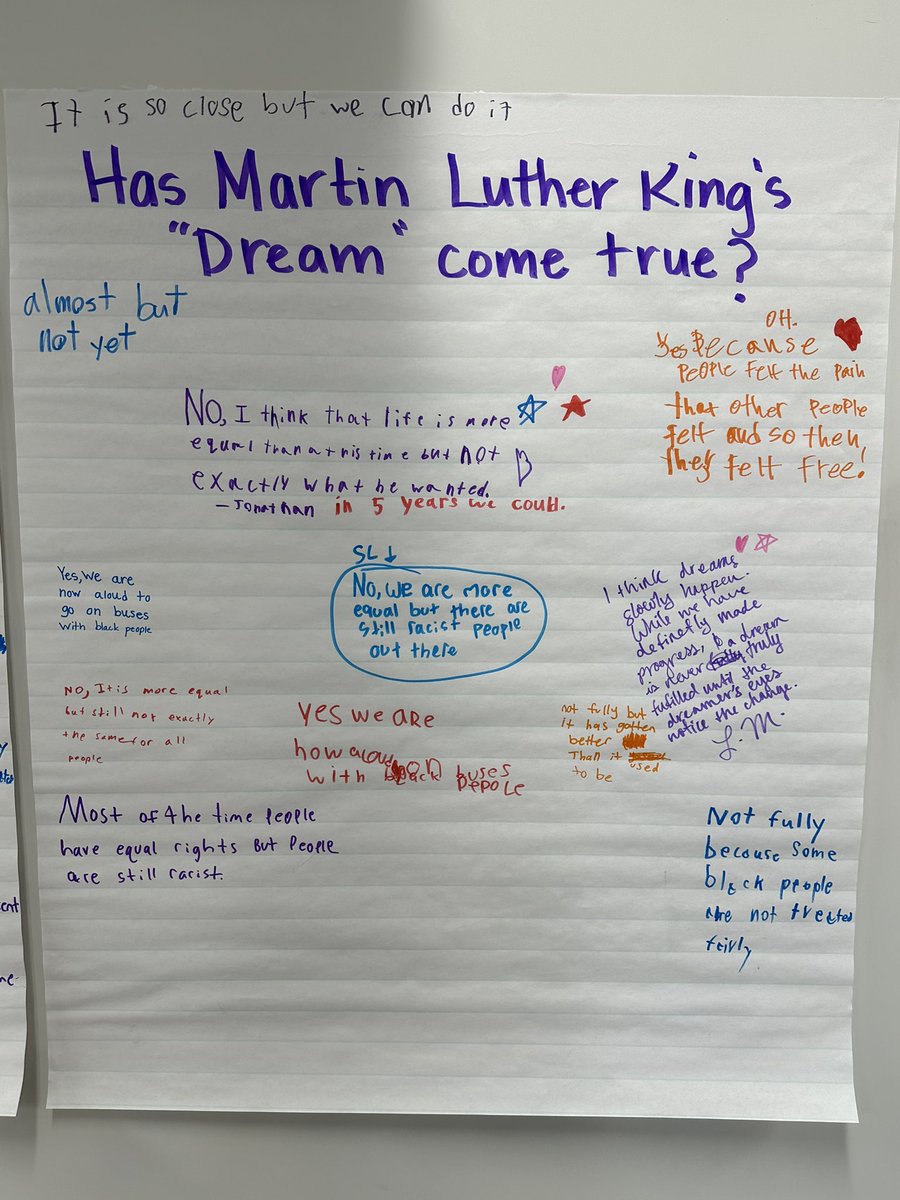 It is so close but we can do it
Has Martin Luther King's
"Dream" come true?
almost but
not yet
OH.
Yes Because
PEOPLE FELT the Pain
that other PEOPLE
felt and so then,
They felt free!
NO, I think that life is more
equal than at his time but NOT
exactly what he wanted.
- Jonathan in 5 years we could.
Yes, We are
now aloud to
go on buses
with black people
SL ↓
No, we are more
equal but there are
still racist people
out there
I think dreams
slowly happen.
While we have
definetly made
progress, a dream
is never truly
fufilled until the
dreamer's eyes
notice the change.
L.M.
NO, It is more equal
but still not exactly
the same for all
people
yes we are
now aloud on buses
with black pepole
not fully but
it has gotten
better
Than it used
to be
Most of the time People
have equal rights But People
are still racist.
Not fully
because some
black people
are not treated
fairly